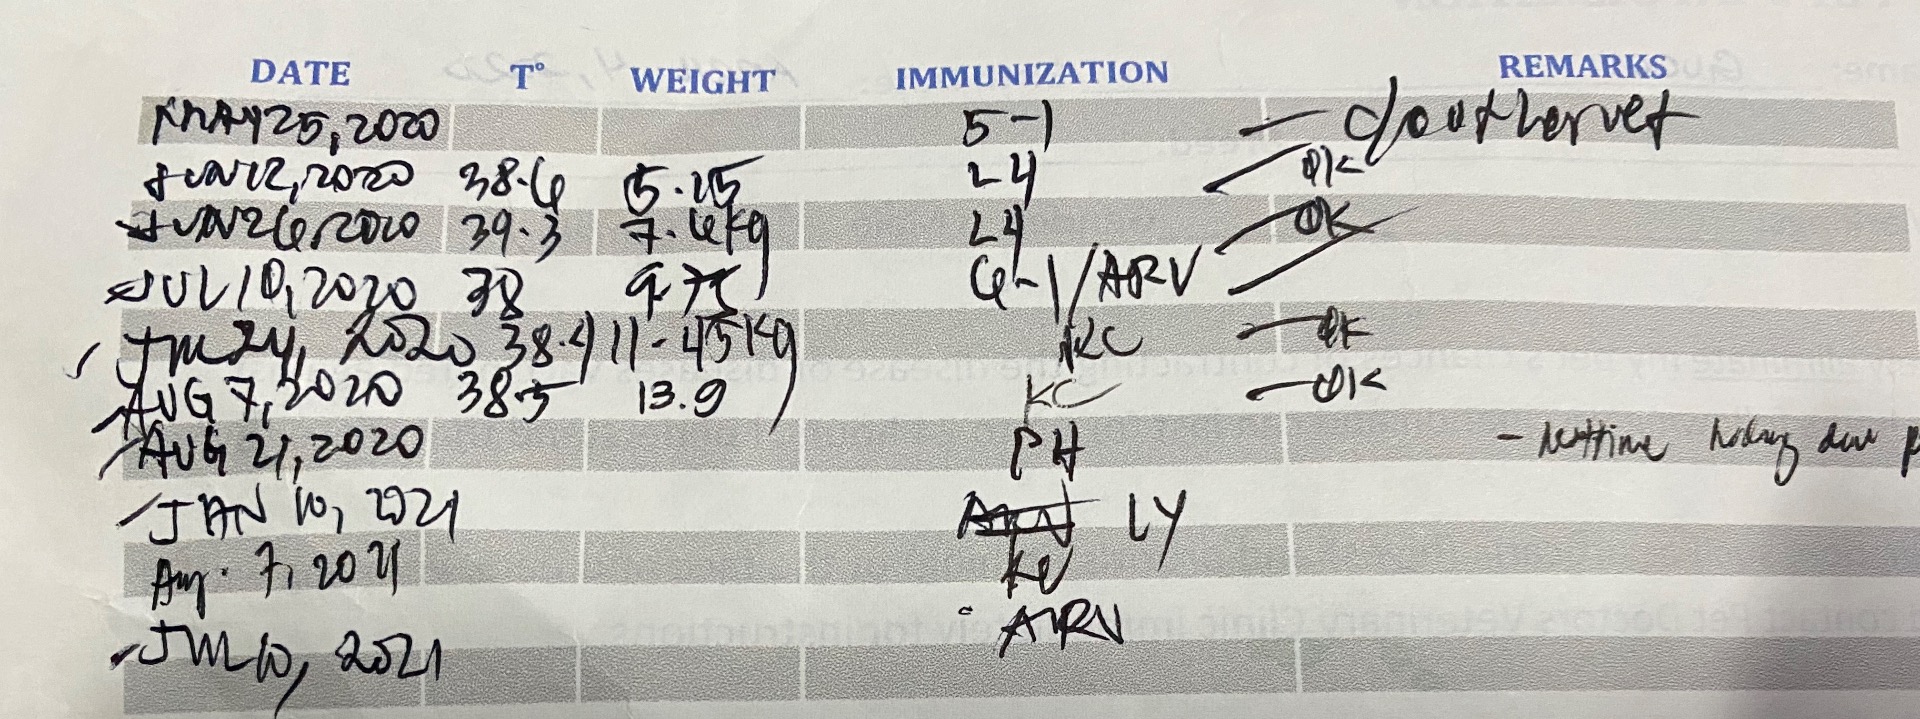 DATE T° WEIGHT IMMUNIZATION REMARKS
MAY 25, 2020 5-1 -
JUN 12, 2020 38.6 5.25 L4 - OK
JUN 26, 2020 39.3 7.6kg L4 - OK
JUL 10, 2020 38 9.75 6-1/ARV -
Jul 24, 2020 38.4 11.45kg KC - OK
AUG 7, 2020 38.5 13.9 KC - OK
AUG 21, 2020 PH -
JAN 10, 2021 L4
Aug. 7, 2021 KC
Jul 10, 2021 ARV